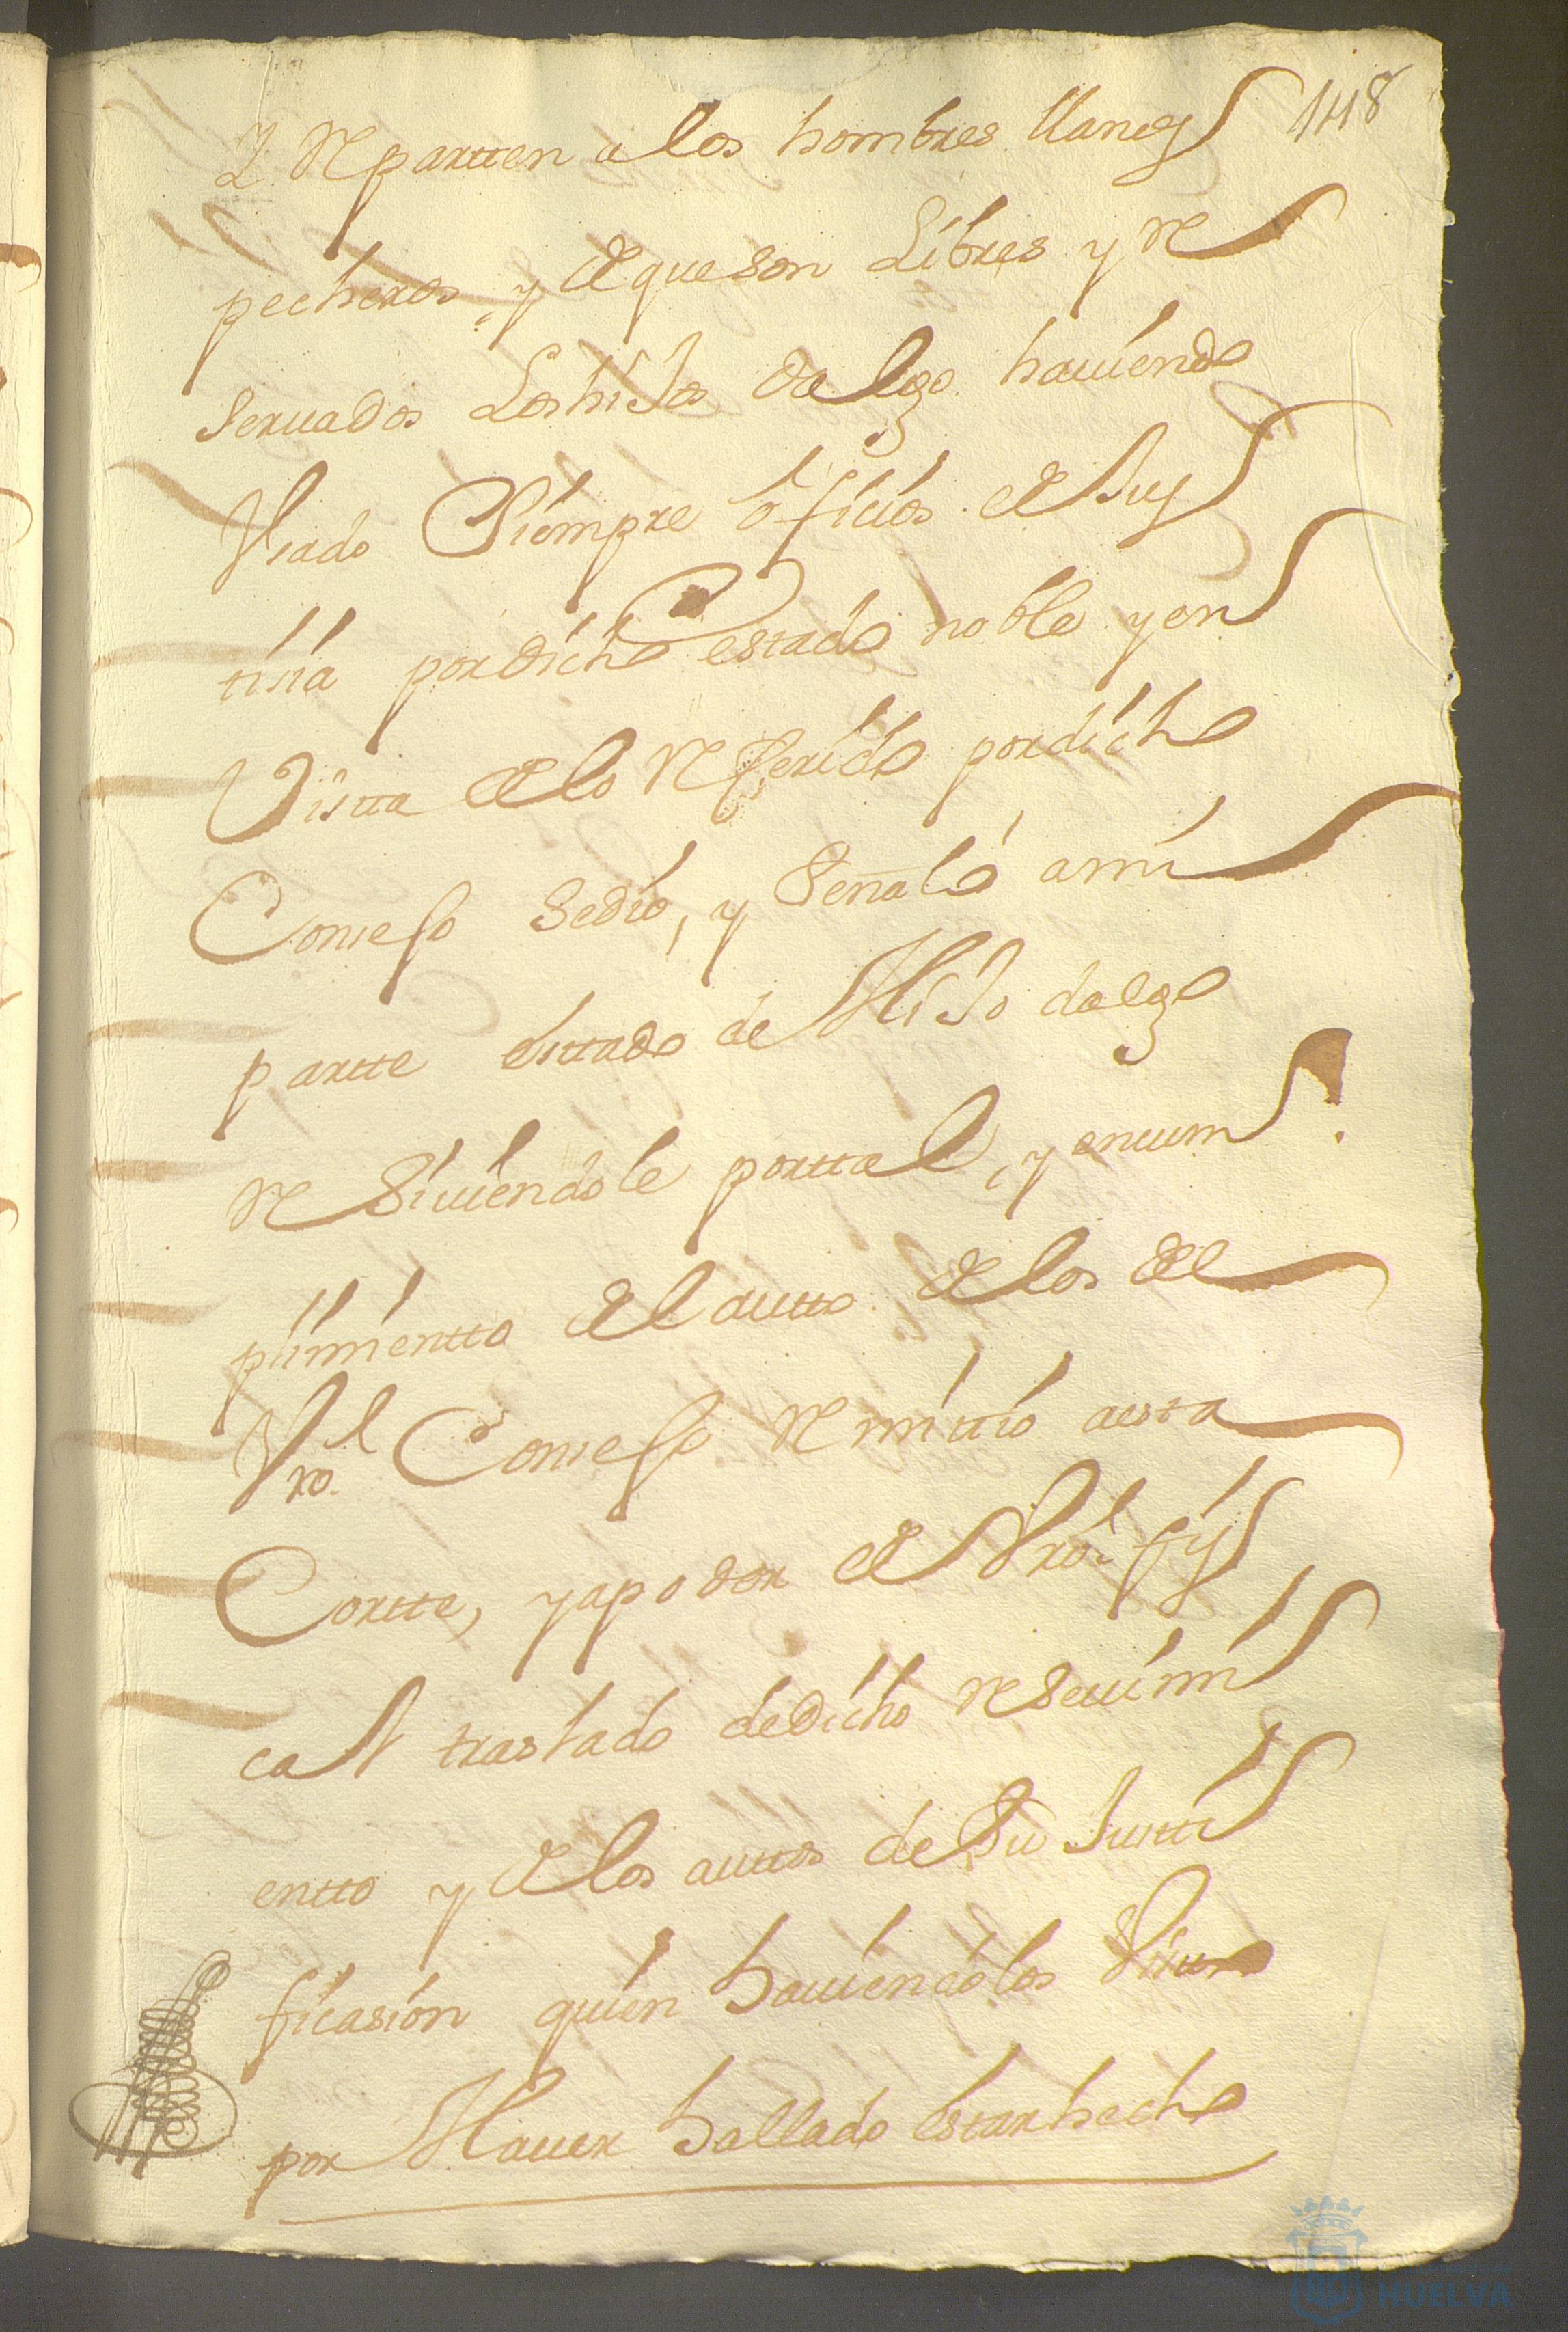 148
Y Repartten a los hombres llanos
pecheros, y de que son Libres y re
seruados Los hiJos dalgo hauiendo
Vsado Siempre oficios de Jus
tisia por dicho estado noble y en
Vistta de lo Referido por dicho
Consejo se dio, y Señaló a mi
partte esttado de HiJo dalgo
reSiuiendole por ttal, y en cum
plimientto del autto de los de
Vro. Consejo Remittió a esta
Cortte, y a poder de Vro. fis
cal traslado de dicho reSeuimi
entto y de los auttos de Su Justti
ficasion quien hauiendolos Visto
por Hauer hallado estar hecho
HUELVA